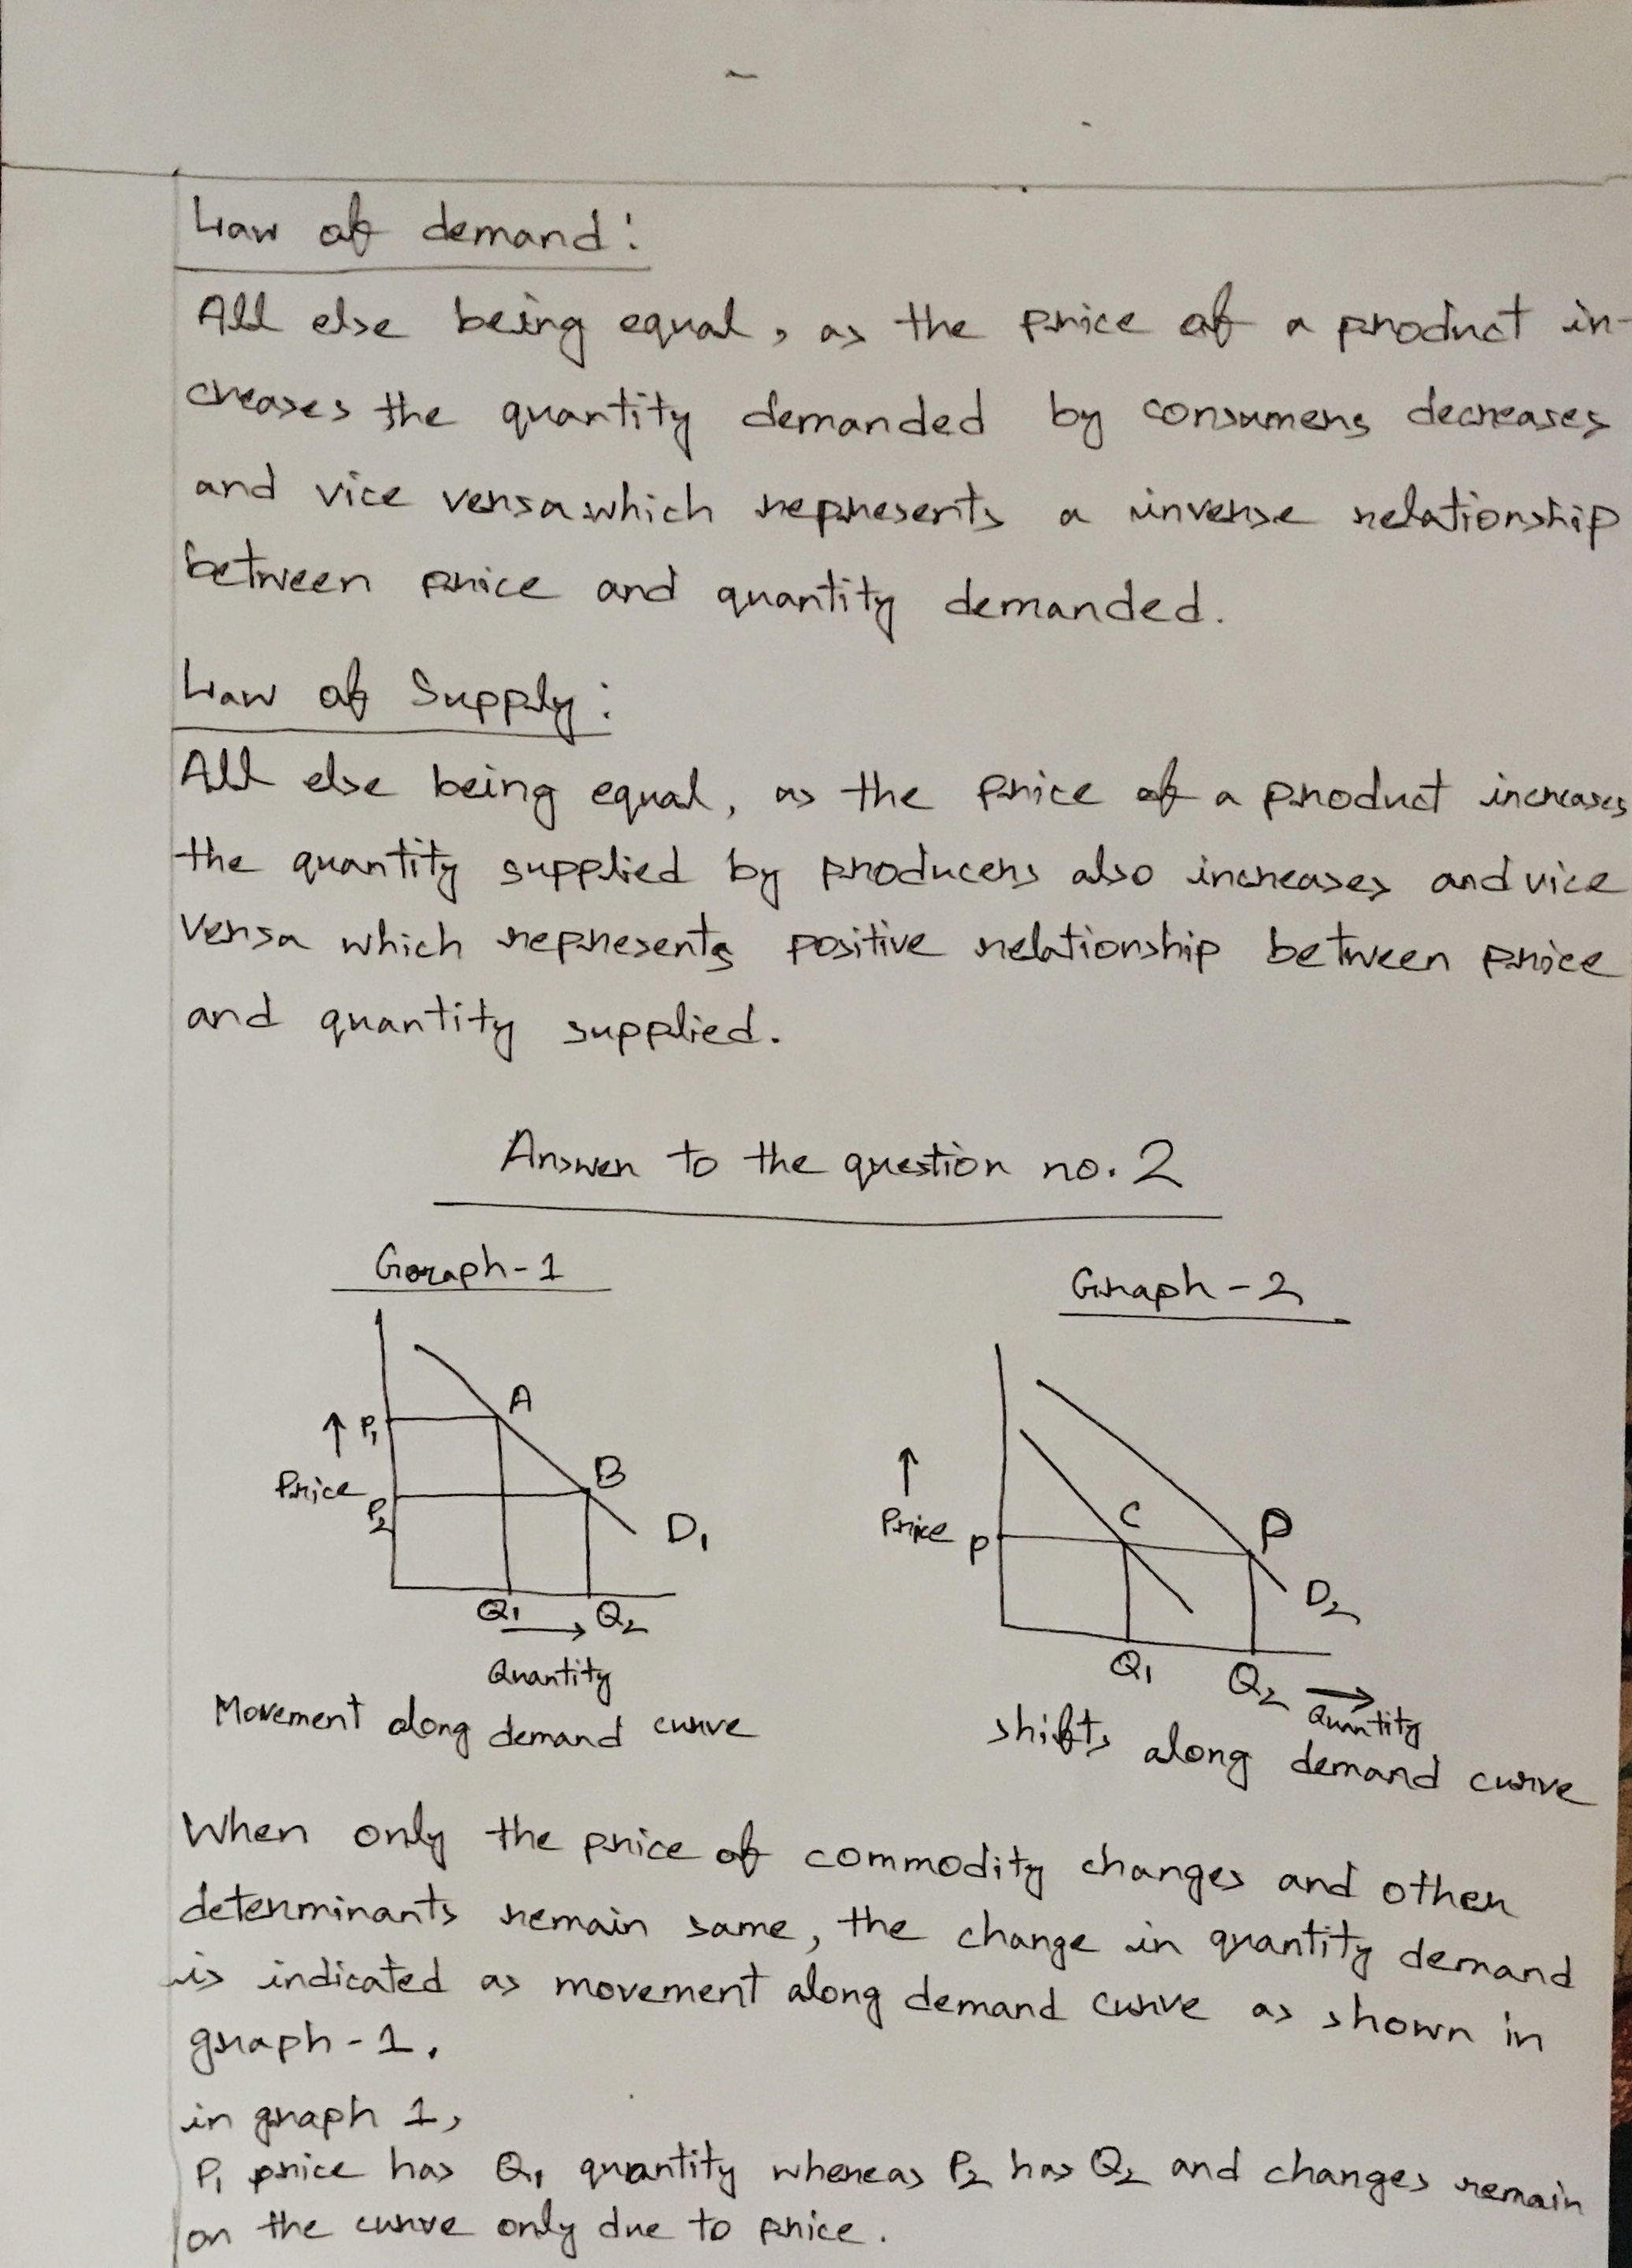 Law of demand:
All else being equal, as the price of a product in-
creases the quantity demanded by consumers decreases
and vice versa which represents a inverse relationship
between price and quantity demanded.
Law of Supply:
All else being equal, as the price of a product increases
the quantity supplied by producers also increases and vice
versa which represents positive relationship between price
and quantity supplied.
Answer to the question no. 2
Graph-1
Graph-2
A
↑ P₁
B
Price
P₂
D₁
Q₁
Q₂
→
Quantity
Movement along demand curve
↑
C
Price P
D
D₂
Q₁
Q₂ →
Quantity
shifts along demand curve
When only the price of commodity changes and other
determinants remain same, the change in quantity demand
is indicated as movement along demand curve as shown in
graph-1.
in graph 1,
P₁ price has Q₁ quantity whereas P₂ has Q₂ and changes remain
on the curve only due to price.